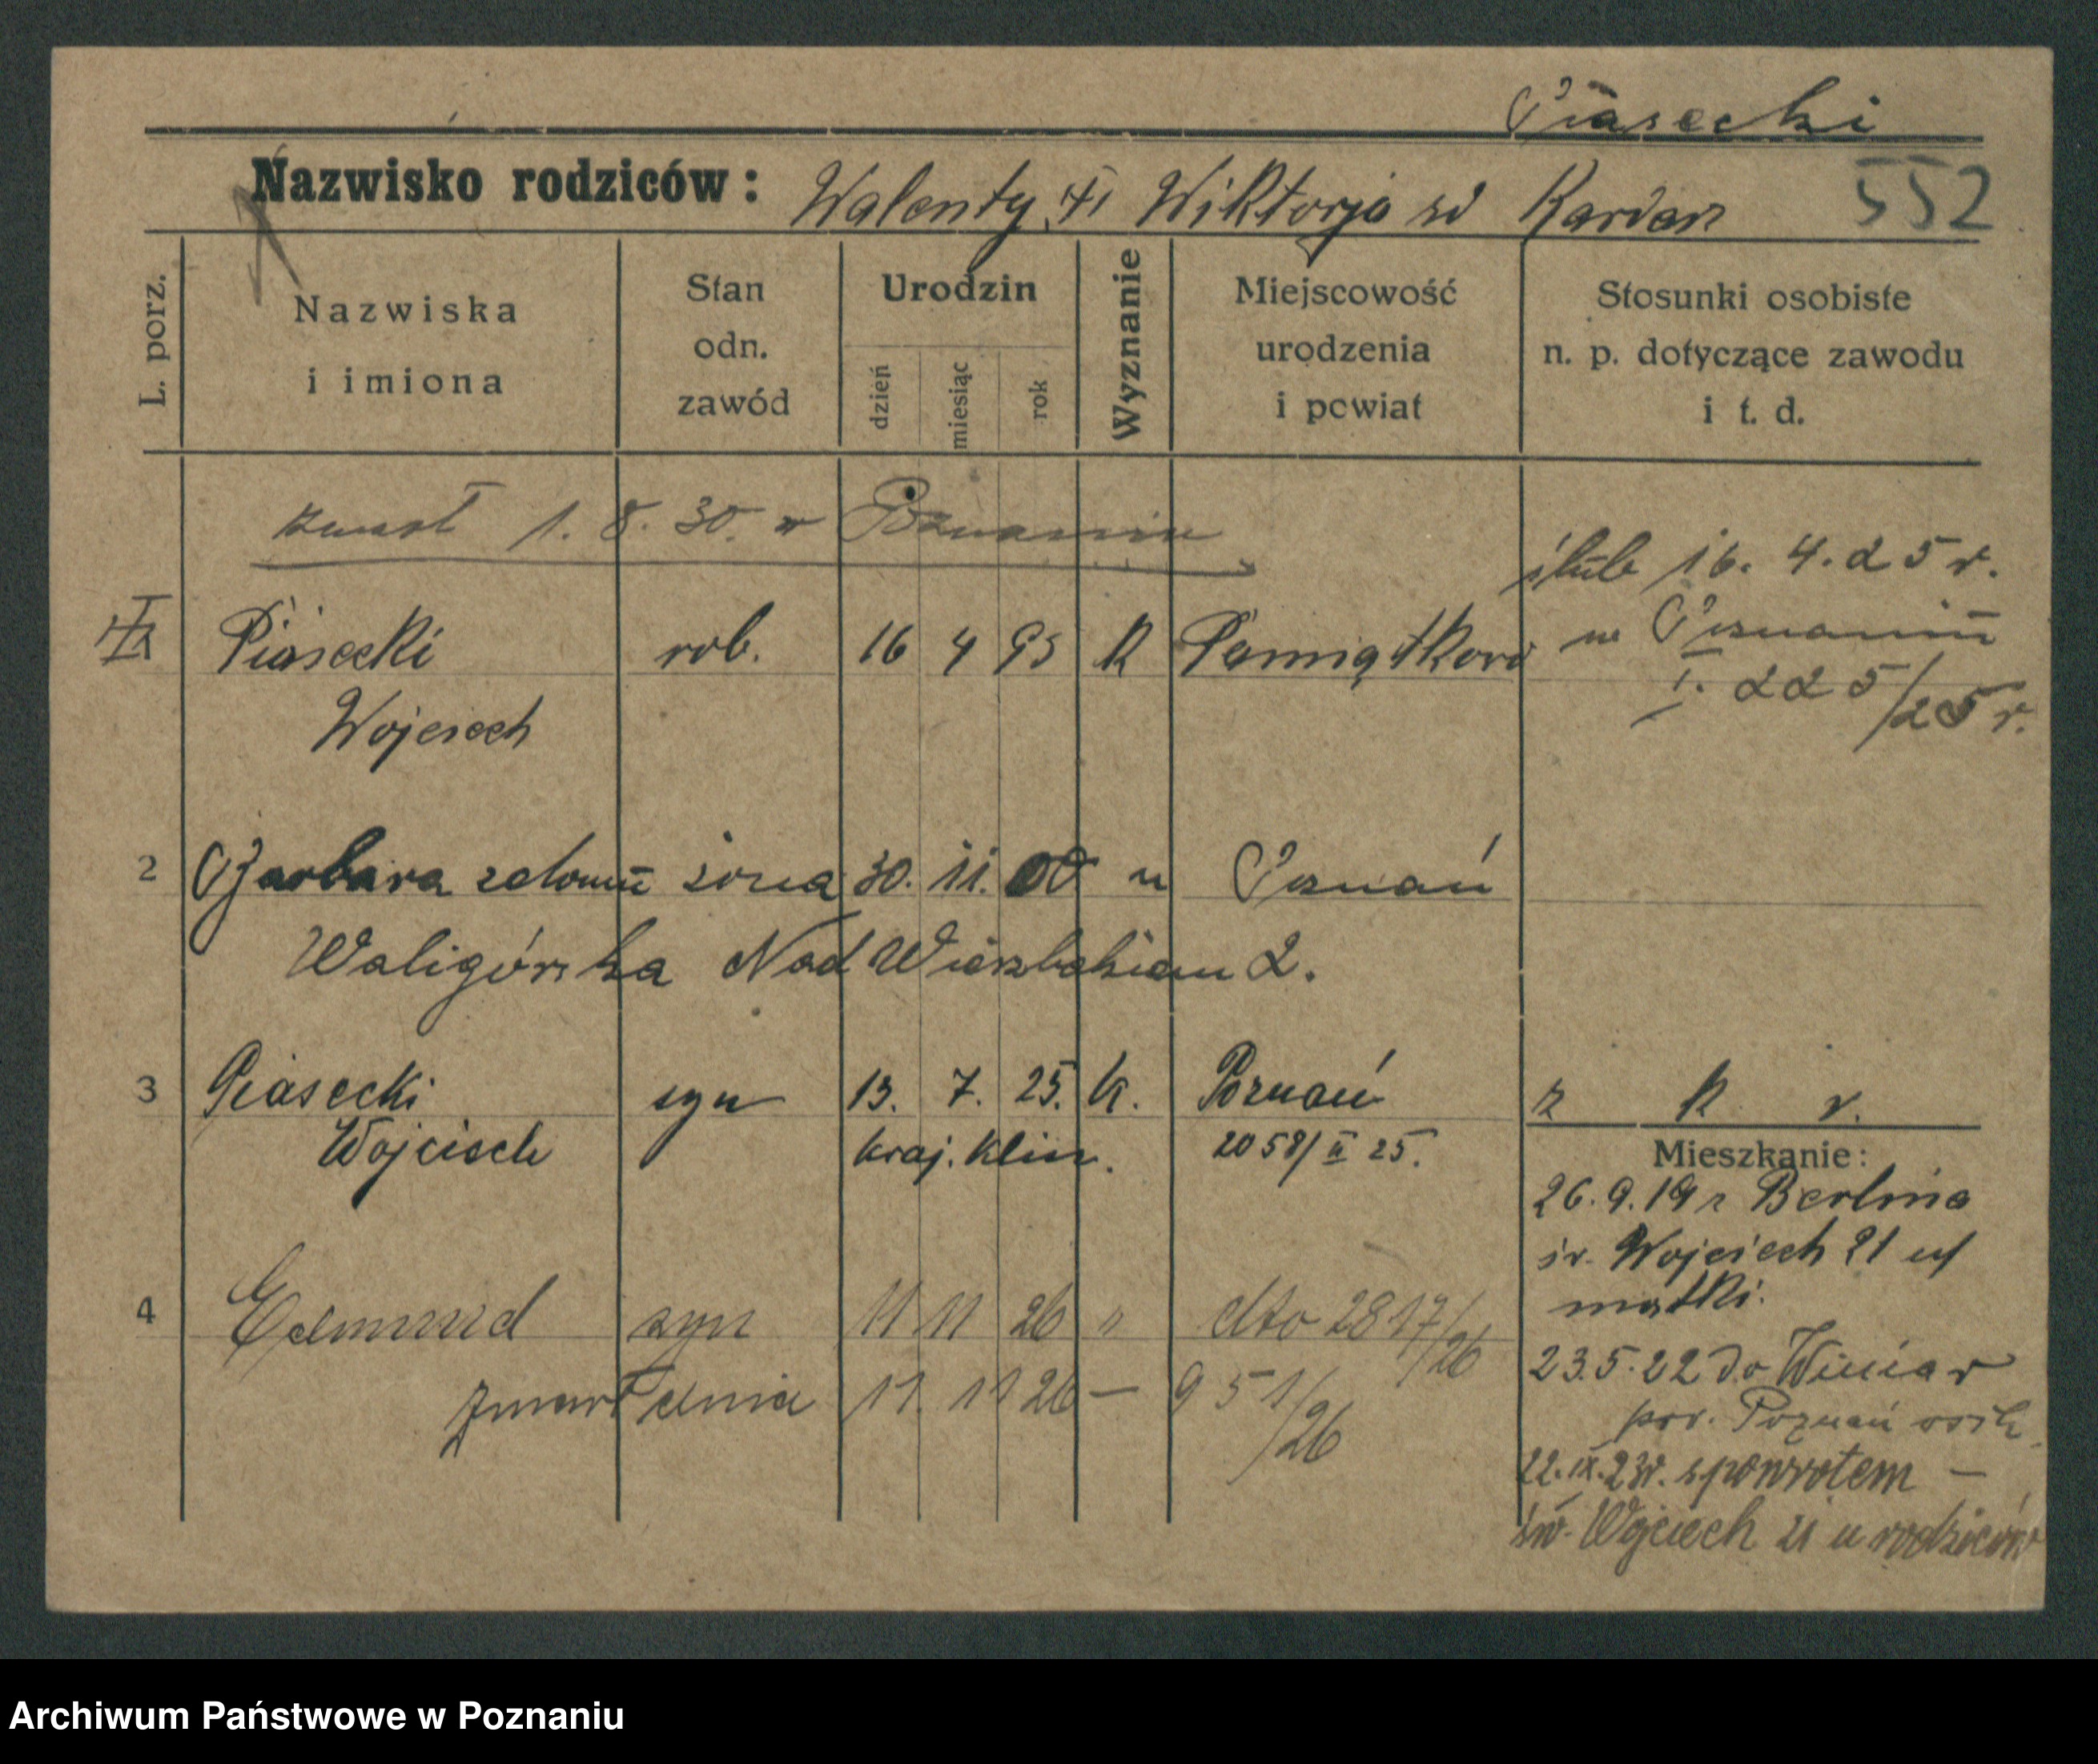 Piasecki
Nazwisko rodziców: Walenty i Wiktorja zd Kardan
552
L. porz.
Nazwiska i imiona
Stan odn. zawód
Urodzin
dzień miesiąc rok
Wyznanie
Miejscowość urodzenia i powiat
Stosunki osobiste n. p. dotyczące zawodu i t. d.
zmarł 1. 8. 30. w Poznaniu
ślub 16. 4. 25 r.
w Poznaniu
I. 225/25 r.
Piasecki rob. 16 4 95 K Pamiątkowo
Wojciech
2 Barbara z domu żona 30. 11. 00 " Poznań
Waligórska Nad Wierzbakiem 2.
3 Piasecki syn 13. 7. 25. k. Poznań
Wojciech kraj. klin. 2058/II 25.
z K r.
Mieszkanie:
26.9.19 z Berlina
św. Wojciech 21 u
matki.
4 Edmund syn 11 11 26 " dto 2817/26
zmarł dnia 11. 11 26 — 951/26
23.5.22 do Winiar
pow. Poznań
22.IX.23r. spowrotem —
św. Wojciech 21 u rodziców
Archiwum Państwowe w Poznaniu